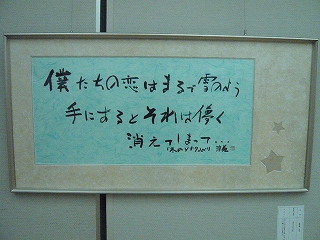 僕たちの恋はまるで雪のよう
手にするとそれは儚く
消えてしまって...